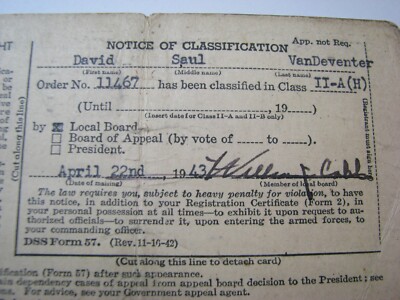 NOTICE OF CLASSIFICATION App. not Req.
David Saul VanDeventer
(First name) (Middle name) (Last name)
Order No. 11467 has been classified in Class II-A(H)
(Until , 19 )
(Insert date for Class II-A and II-B only)
by ☒ Local Board.
☐ Board of Appeal (by vote of to ).
☐ President.
April 22nd , 1943
(Date of mailing) (Member of local board)
The law requires you, subject to heavy penalty for violation, to have this
notice, in addition to your Registration Certificate (Form 2), in your
personal possession at all times—to exhibit it upon request to au-
thorized officials—to surrender it, upon entering the armed forces, to
your commanding officer.
DSS Form 57. (Rev. 11-16-42)
(Cut along this line to detach card)
(Form 57) after such appearance.
dependency cases of appeal from appeal board decision to the President; see
For advice, see your Government appeal agent.
(Cut along this line)